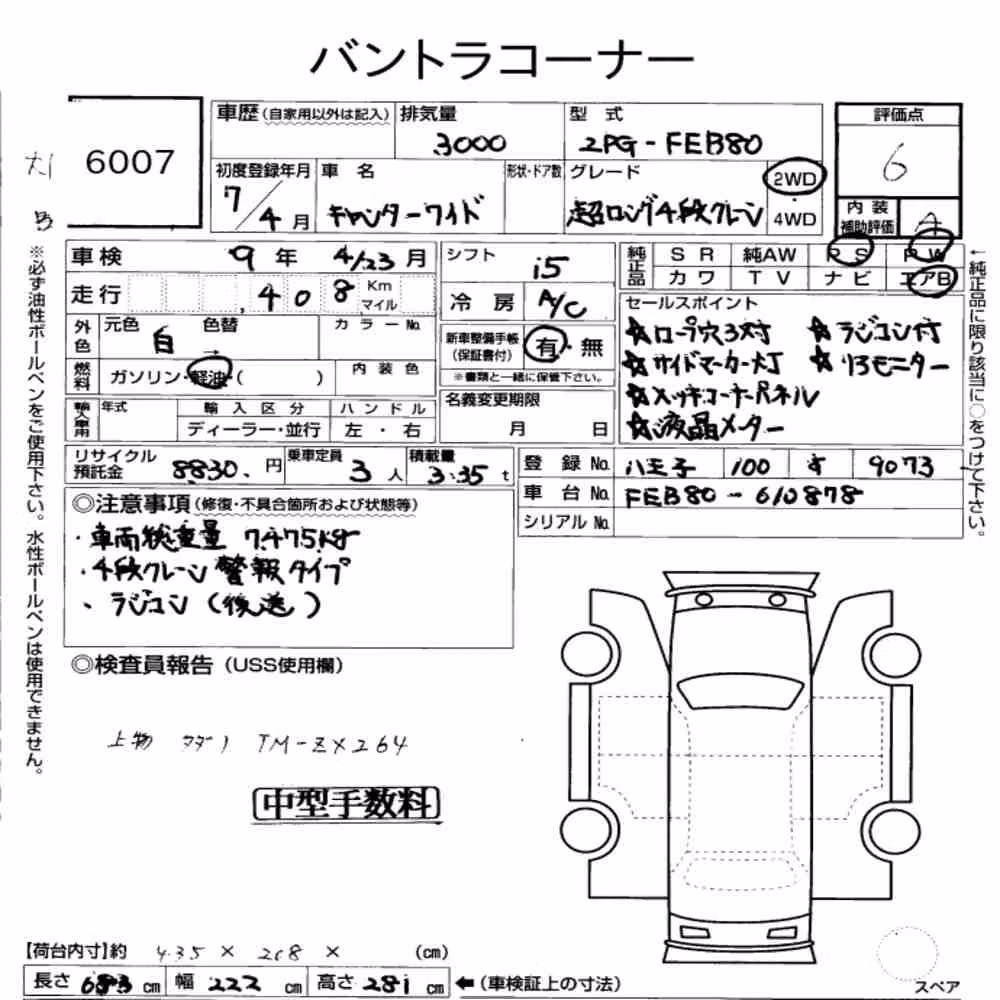 バントラコーナー
6007
車歴(自家用以外は記入) 排気量 3000 型式 2PG-FEB80 評価点 6
初度登録年月 7/4月 車名 キャンターワイド 形状・ドア数 グレード 超ロング4段クレーン 2WD 4WD 内装補助評価 A
車検 9年 4/23月 シフト i5 純正品 SR 純AW PS PW
走行 ,408 Km マイル 冷房 A/C カワ TV ナビ エアB
外色 元色 白 色替 カラーNo. 新車整備手帳(保証書付) 有・無 ※書類と一緒に保管下さい。
燃料 ガソリン・軽油・( ) 内装色
輸入車用 年式 輸入区分 ディーラー・並行 ハンドル 左・右 名義変更期限 月 日
セールスポイント
☆ロープ穴3対 ☆ラジコン付
☆サイドマーカー灯 ☆リヤモニター
☆メッキコーナーパネル
☆液晶メーター
リサイクル預託金 8830.円 乗車定員 3人 積載量 3.35t 登録No. 八王子 100 す 9073
車台No. FEB80-610878
シリアルNo.
◎注意事項(修復・不具合箇所および状態等)
・車両総重量 7475kg
・4段クレーン 警報タイプ
、ラジコン(後送)
◎検査員報告(USS使用欄)
上物 タダノ TM-ZX264
中型手数料
【荷台内寸】約 435 × 208 × (cm)
長さ 683 cm 幅 222 cm 高さ 281 cm ←(車検証上の寸法)
スペア
※必ず油性ボールペンをご使用下さい。水性ボールペンは使用できません。
←純正品に限り該当に○をつけて下さい。